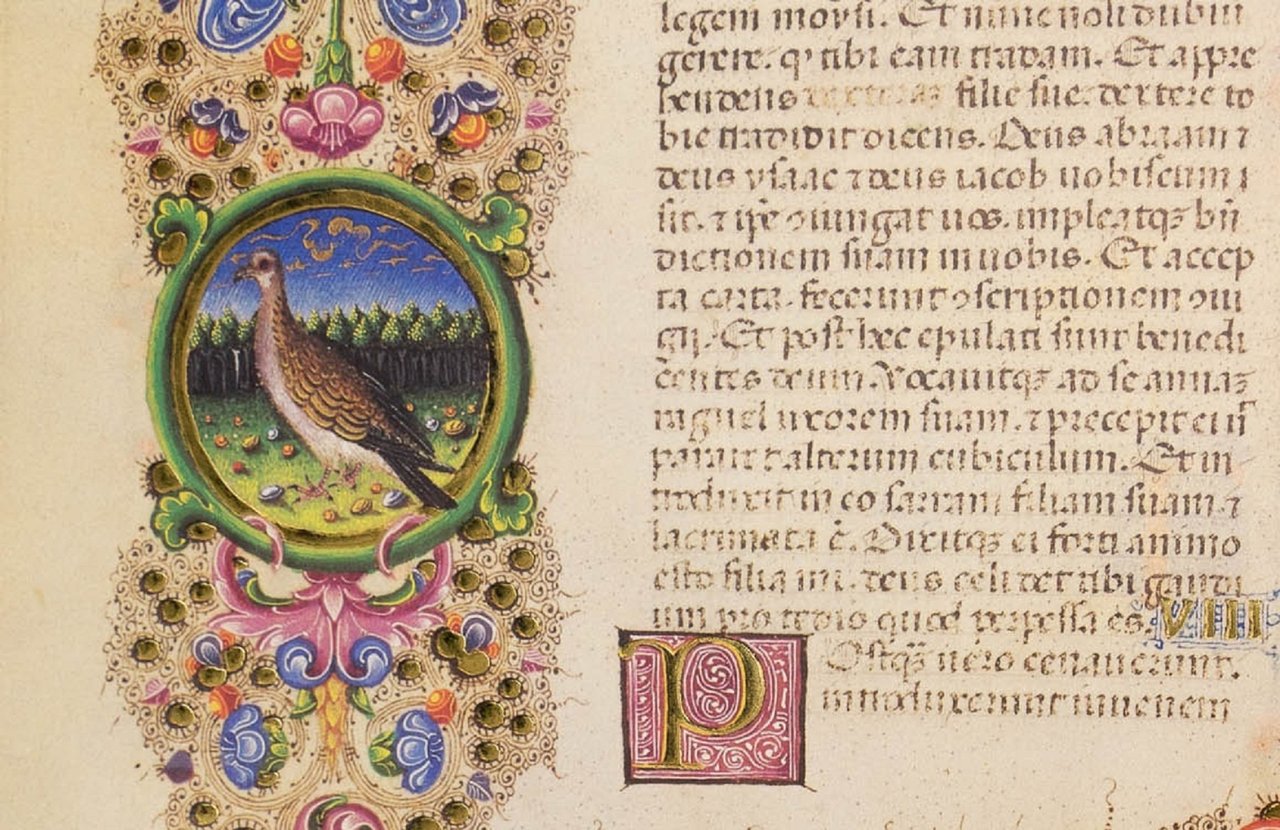 legem moysi. Et nunc noli dubiū
gerere. q' tibi eam tradam. Et appre
hendens dexteram filie sue. dextere to
bie tradidit dicens. Deus abraam ⁊
deus ysaac ⁊ deus iacob uobiscum
sit. ⁊ ip̄e ꝯiungat uos. impleatqꝫ bn̄
dictionem suam in uobis. Et accep
ta carta. fecerunt ꝯscriptionem ꝯiu
gij. Et post hec epulati sunt benedi
centes deum. Vocauitqꝫ ad se annaꝫ
raguel uxorem suam. ⁊ precepit ei ut
pararet alterum cubiculum. Et in
troduxit in eo sarram filiam suam ⁊
lacrimata ē. Dixitqꝫ ei forti animo
esto filia mi. deus celi det tibi gaudi
um pro tedio quod perpessa es. VIII
Postqꝫ uero cenauerunt.
introduxerunt iuuenem